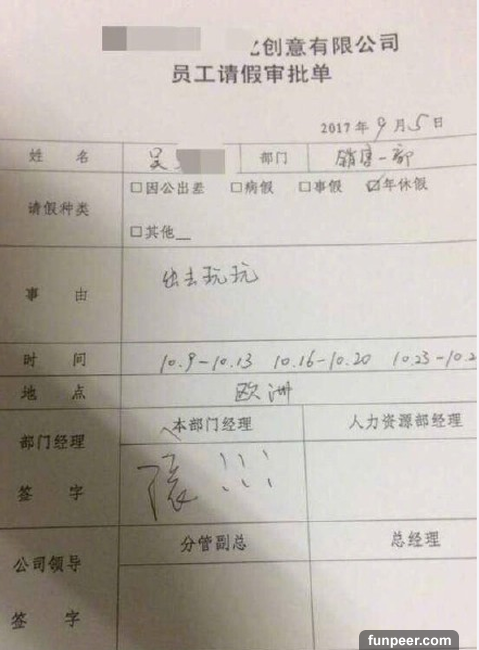 创意有限公司
员工请假审批单
2017年9月5日
姓 名 吴 部门 销售一部
请假种类 □因公出差 □病假 □事假 ☑年休假
□其他__
事 由 出去玩玩
时 间 10.9-10.13 10.16-10.20 10.23-10.2
地 点 欧洲
部门经理 本部门经理 人力资源部经理
签 字 !!!
公司领导 分管副总 总经理
签 字
funpeer.com